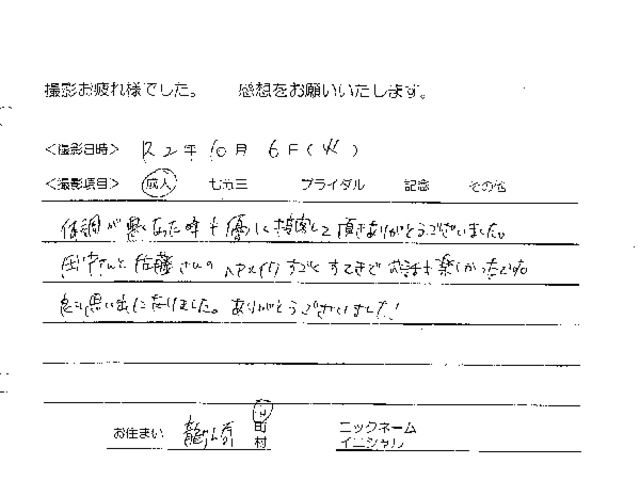 撮影お疲れ様でした。 感想をお願いいたします。
<撮影日時> R2年10月6日(火)
<撮影項目> 成人 七五三 ブライダル 記念 その他
体調が悪くなった時も優しく接客して頂きありがとうございました。
田中さんと佐藤さんのヘアメイクすごくすてきでお話も楽しかったです。
良い思い出になりました。ありがとうございました!
お住まい 龍ヶ 市 町 村 ニックネーム イニシャル